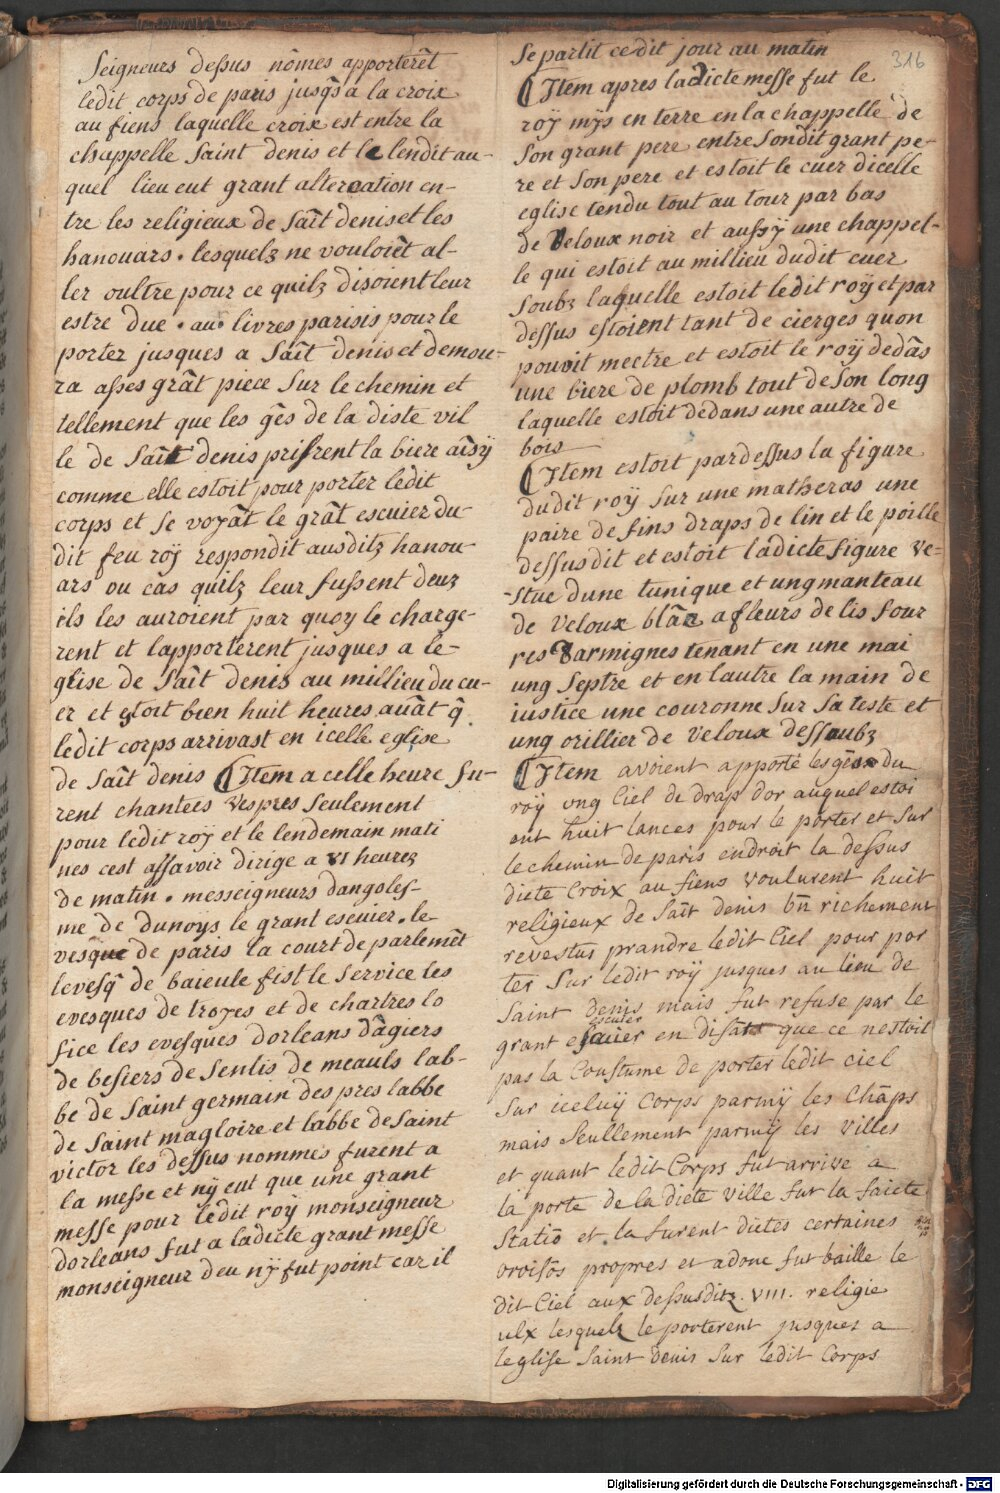 Seigneurs dessus nōmes apporterēt
ledit corps de paris jusq̄s a la croix
au fiens laquelle croix est entre la
chappelle Saint denis et le lendit au-
quel lieu eut grant altercation en-
tre les religieux de Saīt denis et les
hanouars. lesquelz ne vouloiēt al-
ler oultre pour ce quilz disoient leur
estre due . au. livres parisis pour le
porter jusques a Saīt denis et demou-
ra asses grāt piece sur le chemin et
tellement que les gēs de la diste vil
le de Saīt denis prisrent la biere aīsÿ
comme elle estoit pour porter ledit
corps et se voyāt le grāt escuier du-
dit feu roÿ respondit ausditz hanou-
ars ou cas quilz leur fussent deuz
ils les auroient par quoy le charge-
rent et lapporterent jusques a le-
glise de Saīt denis au millieu du cu-
er et estoit bien huit heures avāt q̄
ledit corps arrivast en icelle eglise
de Saīt denis Item a celle heure fu-
rent chantees vespres seulement
pour ledit roÿ et le lendemain mati
nes cest assavoir dirige a VI heurez
de matin . messeigneurs dangoles-
me de dunoÿs le grant escuier . le-
vesque de paris la court de parlemēt
levesq̄ de baieule fist le service les
evesques de troyes et de chartres lo
fice les evesques dorleans dāgiers
de besiers de senlis de meauls lab-
be de Saint germain des pres labbe
de Saint magloire et labbe de Saint
victor les dessus nommes furent a
la messe et nÿ eut que une grant
messe pour ledit roÿ monseigneur
dorleans fut a ladicte grant messe
monseigneur deu nÿ fut point car il
Se partit cedit jour au matin
316
Item apres ladicte messe fut le
roÿ mÿs en terre en la chappelle de
Son grant pere entre sondit grant pe-
re et son pere et estoit le cuer dicelle
eglise tendu tout au tour par bas
de Veloux noir et aussÿ une chappel-
le qui estoit au millieu dudit cuer
soubz laquelle estoit ledit roÿ et par
dessus estoient tant de cierges quon
pouoit mectre et estoit le roÿ dedās
une biere de plomb tout de son long
laquelle estoit dedans une autre de
bois
Item estoit par dessus la figure
dudit roÿ sur une matheras une
paire de fins draps de lin et le poille
dessusdit et estoit ladicte figure ve-
stue dune tunique et ung manteau
de veloux blāc a fleurs de lis four
res darmignes tenant en une mai
ung septre et en lautre la main de
iustice une couronne sur sa teste et
ung orillier de veloux dessoubz
Item avoient apporté les gēs du
roÿ ung Ciel de drap dor auquel estoi
ent huit lances pour le porter et sur
le chemin de paris endroit la dessus
diete Croix au fiens voulurent huit
religieux de Saīt denis bn̄ richement
revestus prandre ledit Ciel pour por
ter sur ledit roÿ jusques au lieu de
Saint denis mais fut refuse par le
grant escuier en disāt que ce nestoit
pas la Coustume de porter ledit ciel
sur iceluÿ Corps parmÿ les Chāps
mais seullement parmÿ les villes
et quant ledit Corps fut arrive a
la porte de la diete ville fut la faiete
statiō et la furent dietes certaines
oroisōs propres et adonc fut baille le
dit Ciel aux dessusditz . VIII . religie
ulx lesquelz le porterent jusques a
leglise Saint denis sur ledit Corps
Digitalisierung gefördert durch die Deutsche Forschungsgemeinschaft - DFG